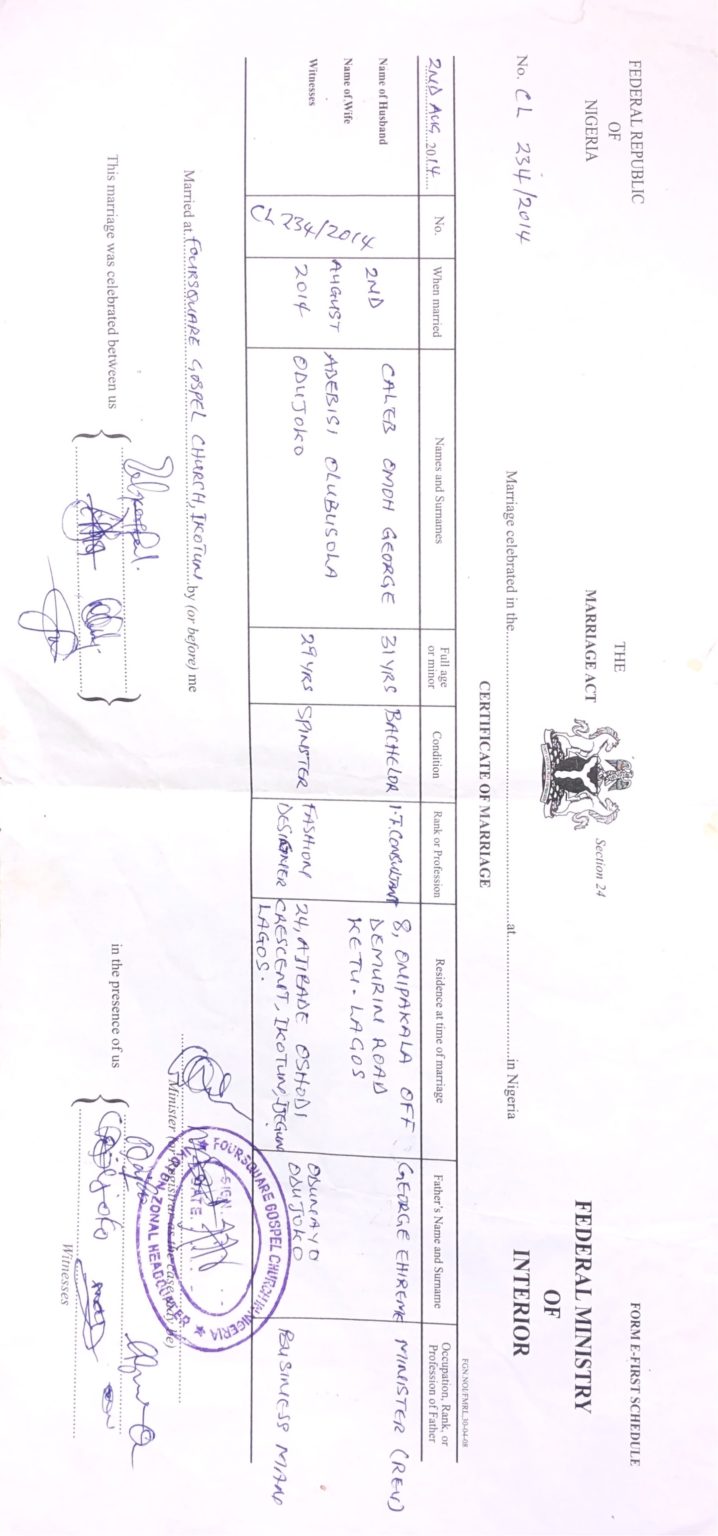 FORM E-FIRST SCHEDULE
FEDERAL REPUBLIC
OF
NIGERIA
THE
MARRIAGE ACT
Section 24
FEDERAL MINISTRY
OF
INTERIOR
No. CL 234/2014
Marriage celebrated in the at in Nigeria
CERTIFICATE OF MARRIAGE
2ND AUG 2014
No.
When married
Names and Surnames
Full age or minor
Condition
Rank or Profession
Residence at time of marriage
Father's Name and Surname
Occupation, Rank, or Profession of Father
Name of Husband
Name of Wife
Witnesses
CL 234/2014
2ND
AUGUST
2014
CALEB OMOH GEORGE
31 YRS
BACHELOR
I.T. CONSULTANT
8, ONIPAKALA OFF
DEMURIN ROAD
KETU. LAGOS
GEORGE EHIREME
MINISTER (REV)
ADEBISI OLUBUSOLA
ODUJOKO
29 YRS
SPINSTER
FASHION
DESIGNER
24, AJIBADE OSHODI
CRESCENT, IKOTUN, IJEGUN
LAGOS.
ODUNAYO
ODUJOKO
BUSINESS MAN
Married at FOURSQUARE GOSPEL CHURCH, IKOTUN by (or before) me
FOURSQUARE GOSPEL CHURCH IN NIGERIA
SIGN
DATE
ZONAL HEADQUARTER
This marriage was celebrated between us
in the presence of us
Witnesses